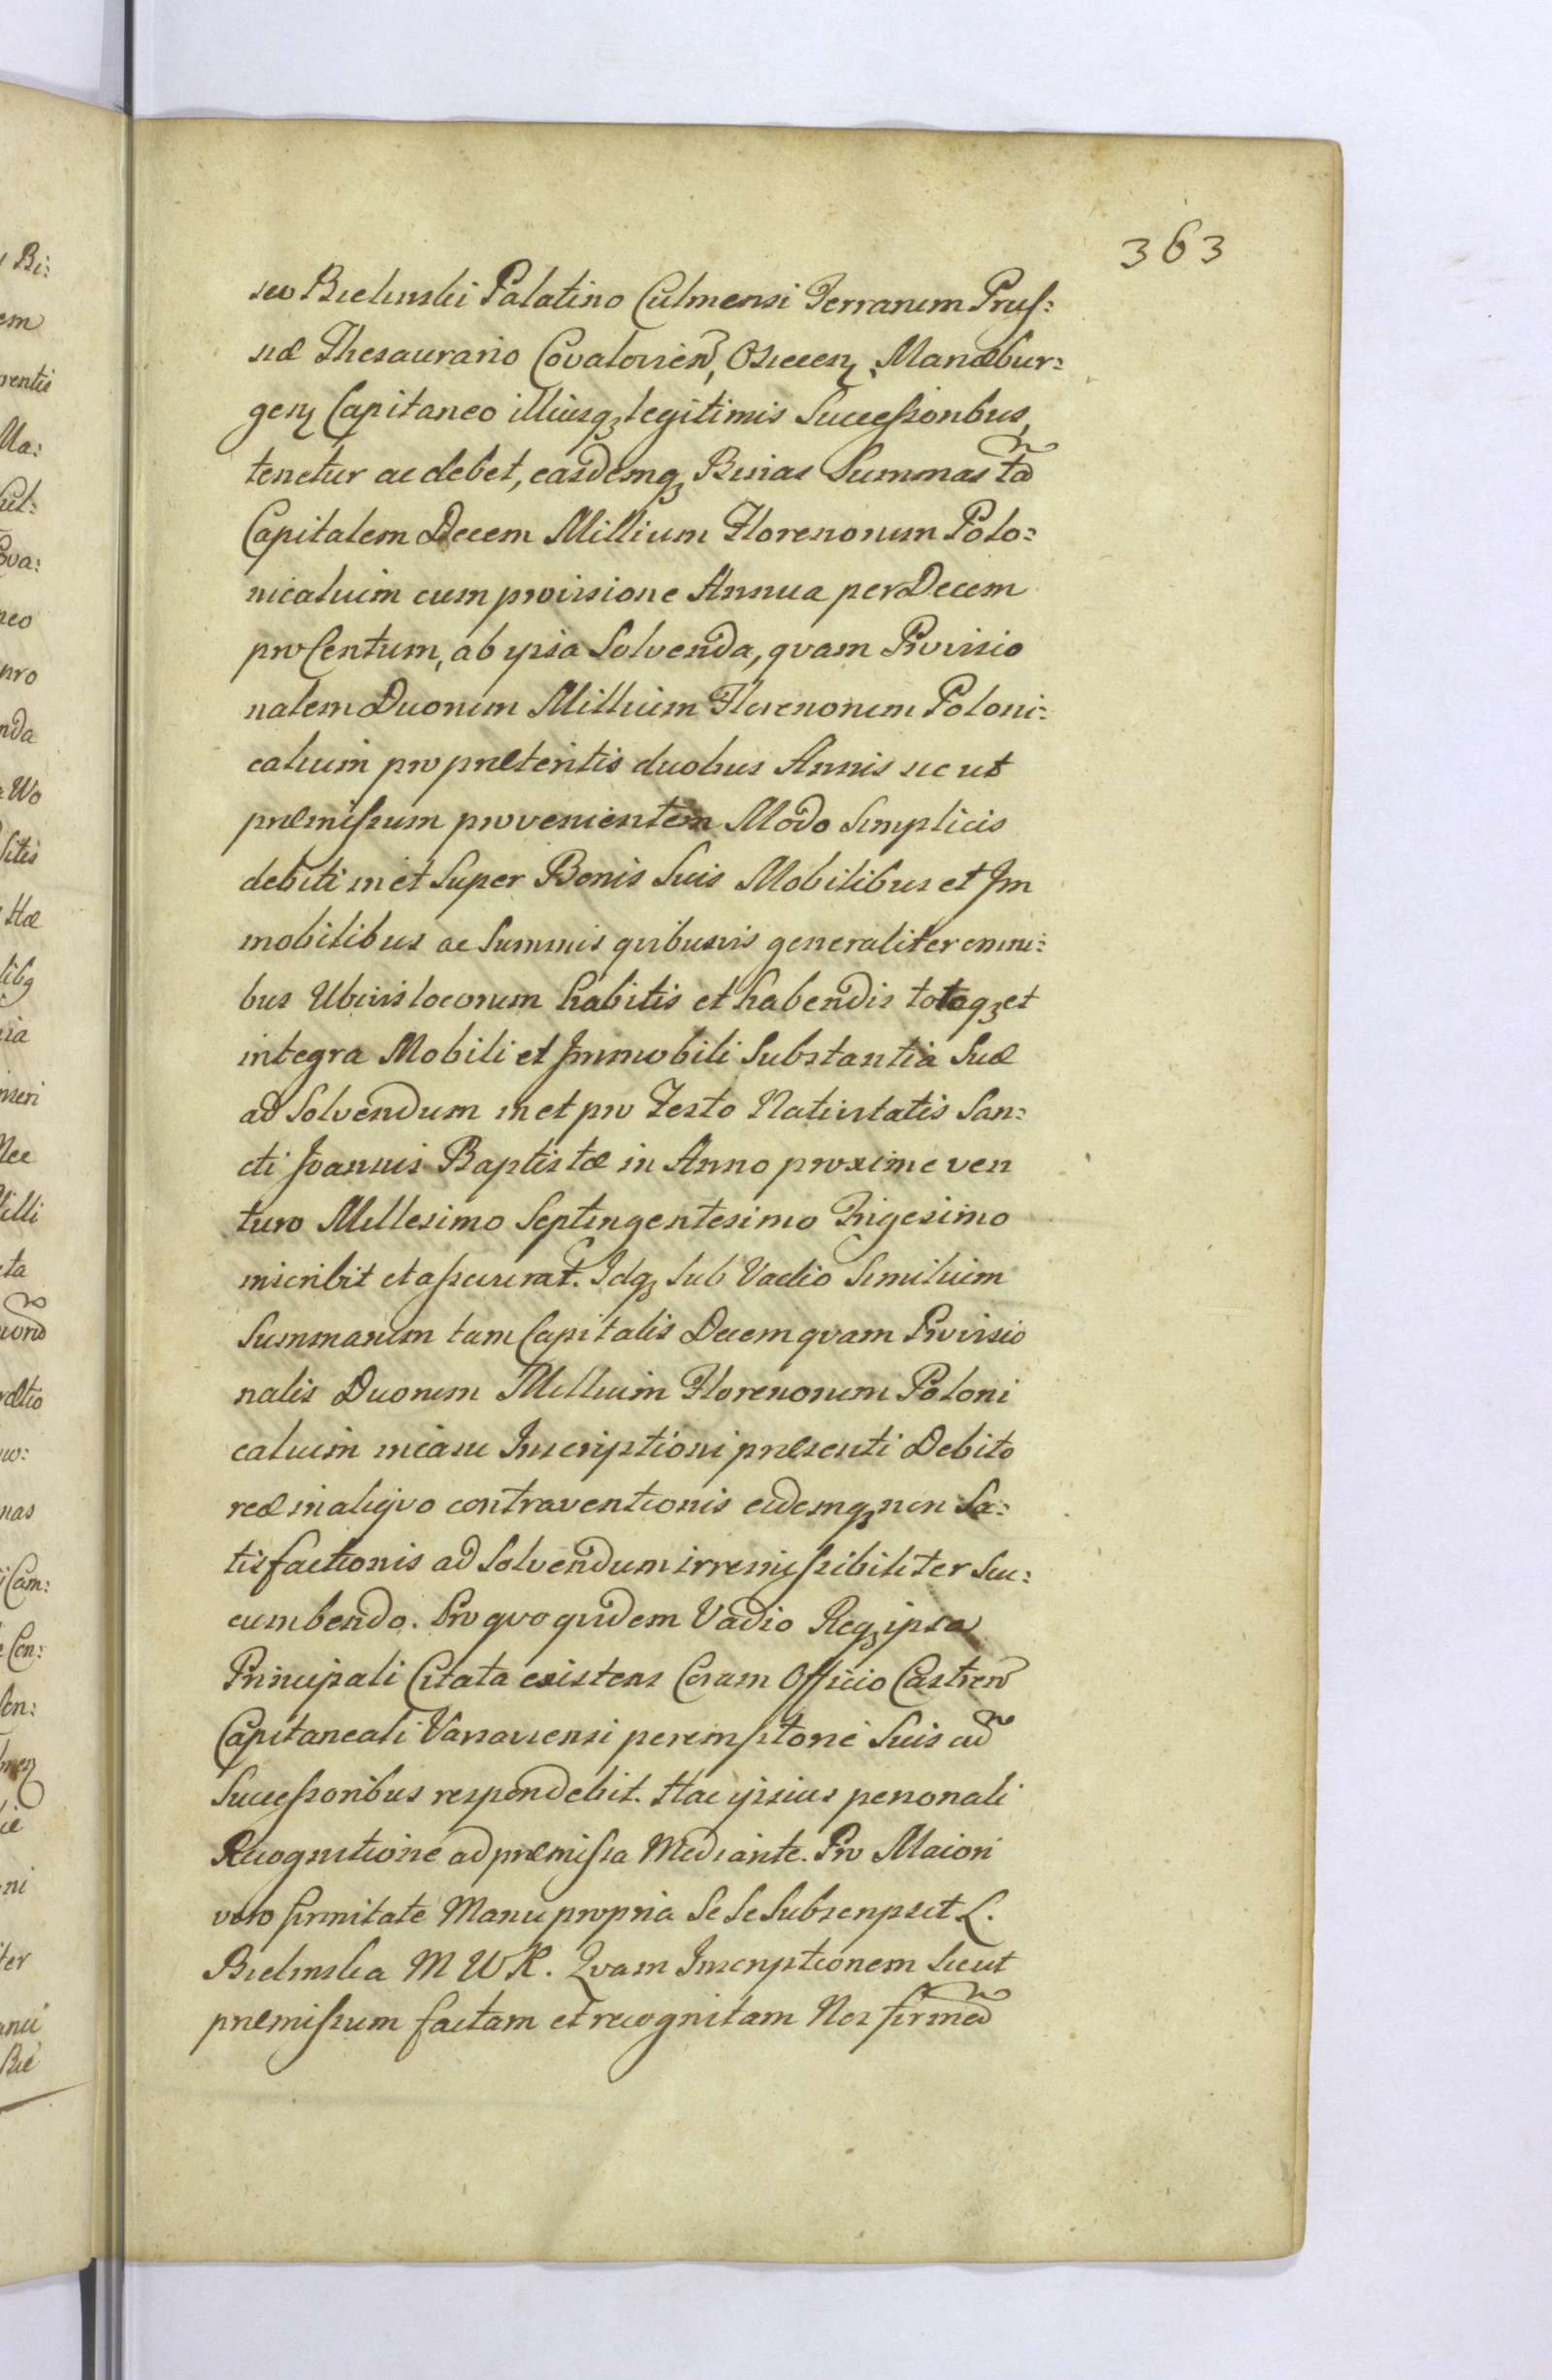 363
sco Bielinski Palatino Culmensi Terrarum Prus:
siæ Thesaurario Covalovien, Osiecen, Mariæbur:
gen Capitaneo illiusq legitimis Successoribus,
tenetur ac debet, easdemq Binas Summas ta
Capitalem Decem Millium Florenorum Polo:
nicalium cum provisione Annua per Decem
pro Centum, ab ipsa Solvenda, qvam Provisio
nalem Duorum Millium Florenorum Poloni:
calium pro præteritis duobus Annis uc ut
præmissum provenientem Modo Simplicis
debiti in et Super Bonis Suis Mobilibus et Im
mobilibus ac Summis qvibusvis generaliter omni:
bus Ubivis locorum habitis et habendis totaq et
integra Mobili et Immobili Substantia Sua
ad Solvendum in et pro Festo Nativitatis San:
cti Joannis Baptistæ in Anno proxime ven
turo Millesimo Septingentesimo Trigesimo
inscribit et assecurat. Idq Sub Vadio Similium
Summarum tam Capitalis Decem qvam Provisio
nalis Duorum Millium Florenorum Poloni
calium in casu Inscriptioni præsenti Debito
reæ in aliqvo contraventionis eidemq non Sa:
tisfactionis ad Solvendum irremissibiliter Suc:
cumbendo. Pro qvo qvidem Vadio Reqipsa
Principali Citata existens Coram Officio Castren
Capitaneali Varsaviensi peremptorie Suis cu
Successoribus respondebit. Hac ipsius personali
Recognitione ad præmissa Mediante. Pro Maiori
vero firmitate Manu propria Se Se Subscripsit L.
Bielinska M W K. Qvam Inscriptionem Sicut
præmissum factam et recognitam Nos firmed